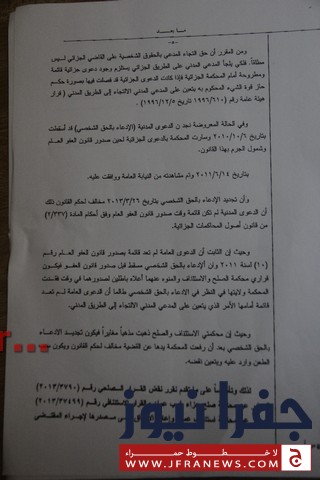 ما بعد
ومن المقرر أن حق التجاء المدعي بالحقوق الشخصية على القاضي الجزائي ليس
مطلقاً. فلكي يلجأ المدعي المدني إلى الطريق المدني يستلزم وجود دعوى جزائية قائمة
ومطروحة أمام المحكمة الجزائية فإذا كانت الدعوى الجزائية قد فصلت فيها بصورة حكم
حاز قوة الشيء المحكوم به يتعين على المدعي المدني الالتجاء إلى الطريق المدني ( قرار
هيئة عامة رقم (٩٩٦/٦١٠) تاريخ ١٩٩٦/١٢/٥ ) .
وفي الحالة المعروضة نجد ن الدعوى المدنية (الإدعاء بالحق الشخصي) قد أسقطت
بتاريخ ٢٠١٠/١٠/٦ وسارت المحكمة بالدعوى الجزائية لحين صدور قانون العفو العام
وشمول الجرم بهذا القانون.
بتاريخ ٢٠١١/٦/١٤ وتم مشاهدته من النيابة العامة ووافقت عليه.
وأن تجديد الإدعاء بالحق الشخصي بتاريخ ٢٠١٣/٣/٢٦ مخالف لحكم القانون ذلك
أن الدعوى المدنية لم تكن قائمة وقت صدور قانون العفو العام وفق أحكام المادة (٢/٣٣٧)
من قانون أصول المحاكمات الجزائية.
وحيث إن الثابت أن الدعوى العامة لم تعد قائمة بصدور قانون العفو العام رقم
(١٠) لسنة ٢٠١١ وأن الإدعاء بالحق الشخصي مسقط قبل صدور قانون العفو فيكون
قراري محكمة الصلح والاستئناف والمنوه عنهما أعلاه باطلين لصدورهما في وقت فقدت
المحكمة ولايتها في النظر في الادعاء بالحق الشخصي طالما أن الدعوى العامة لم تعد
قائمة أمامها الأمر الذي يتعين على المدعي المدني الالتجاء إلى الطريق المدني.
وحيث إن محكمتي الاستئناف والصلح ذهبت مذهباً مغايراً فيكون تجديد الادعاء
بالحق الشخصي بعد أن رفعت المحكمة يدها عن القضية مخالف لحكم القانون ويكون سبب
الطعن وارد عليه ويتعين نقضه.
لذلك وتأسيساً على ما تقدم نقرر نقض القرار الصلحي رقم (٢٠١٣/٣٧٩٠)
(٢٠١٣/٣٧٤٩٩)
مصدرها لإجراء المقتضى
r...
جفرا نيوز
حراك بلا خطوط حمراء
WWW.JFRANEWS.COM